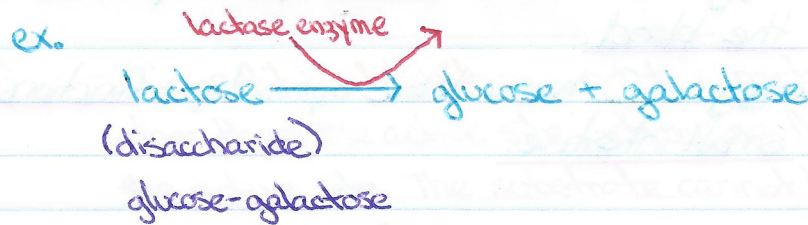 lactase enzyme
ex.
lactose → glucose + galactose
(disaccharide)
glucose-galactose